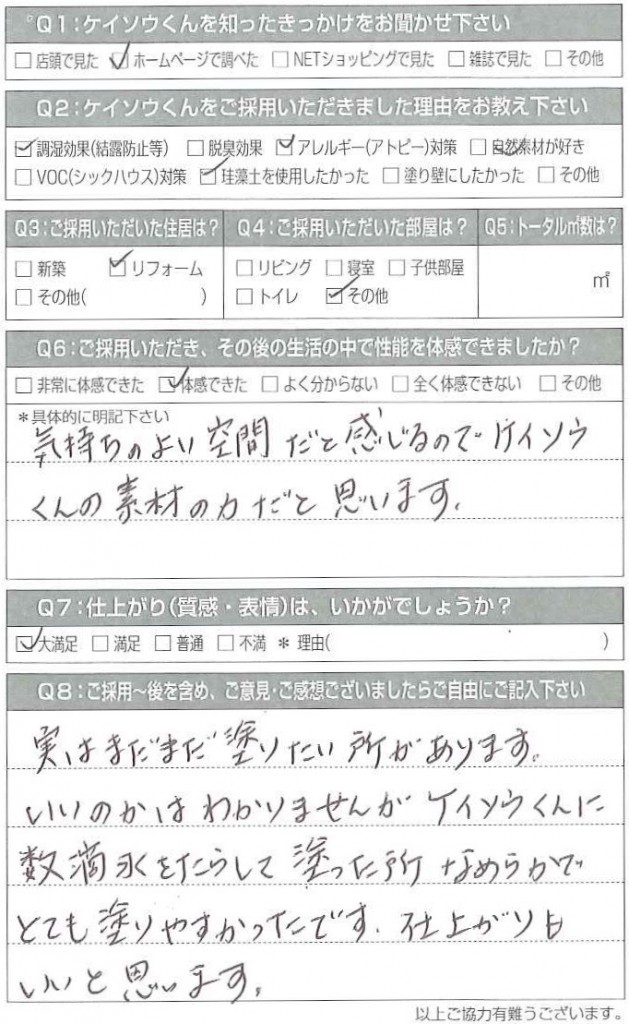 Q1:ケイソウくんを知ったきっかけをお聞かせ下さい
□店頭で見た ☑ホームページで調べた □NETショッピングで見た □雑誌で見た □その他
Q2:ケイソウくんをご採用いただきました理由をお教え下さい
☑調湿効果(結露防止等) □脱臭効果 ☑アレルギー(アトピー)対策 ☑自然素材が好き
□VOC(シックハウス)対策 ☑珪藻土を使用したかった □塗り壁にしたかった □その他
Q3:ご採用いただいた住居は? Q4:ご採用いただいた部屋は? Q5:トータル㎡数は?
□新築 ☑リフォーム □リビング □寝室 □子供部屋 ㎡
□その他( ) □トイレ ☑その他
Q6:ご採用いただき、その後の生活の中で性能を体感できましたか?
□非常に体感できた ☑体感できた □よく分からない □全く体感できない □その他
*具体的に明記下さい
気持ちのよい空間だと感じるので ケイソウ
くんの素材の力だと思います。
Q7:仕上がり(質感・表情)は、いかがでしょうか?
☑大満足 □満足 □普通 □不満 *理由( )
Q8:ご採用～後を含め、ご意見・ご感想ございましたらご自由にご記入下さい
実はまだまだ塗りたい所があります。
いいのかはわかりませんがケイソウくんに
数滴水をたらして塗った所なめらかで
とても塗りやすかったです。仕上がりも
いいと思います。
以上ご協力有難うございます。